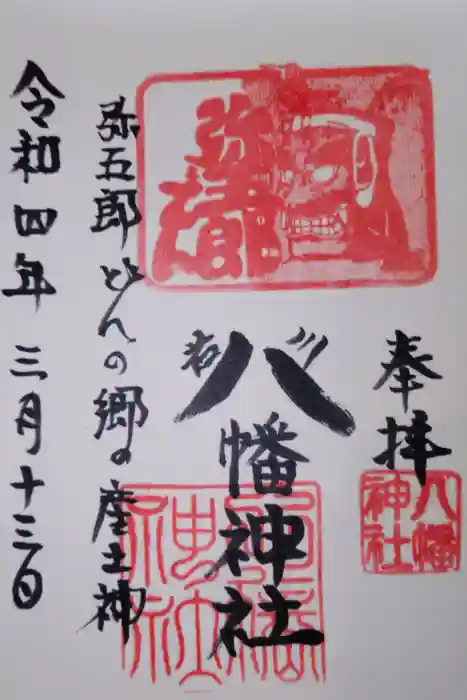 奉拝
八幡神社
岩川
八幡神社
弥五郎どんの郷の産土神
令和四年三月十三日
弥五郎